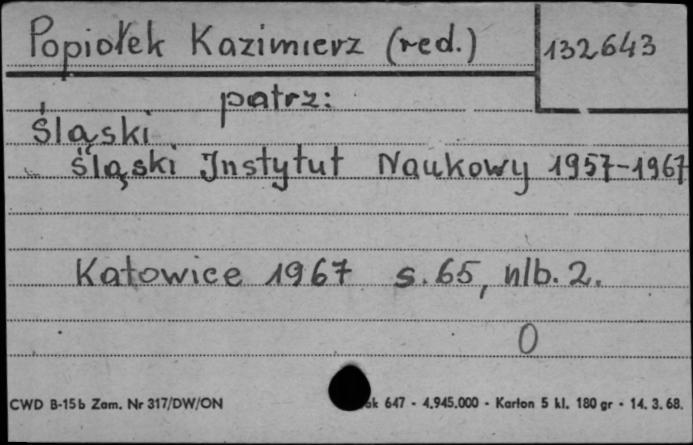 Popiołek Kazimierz (red.) 132643
patrz:
Śląski
Śląski Instytut Naukowy 1957-1967
Katowice 1967 s. 65, nlb. 2.
0
CWD B-15b Zam. Nr 317/DW/ON 647 - 4.945.000 - Karton 5 kl. 180 gr - 14. 3. 68.